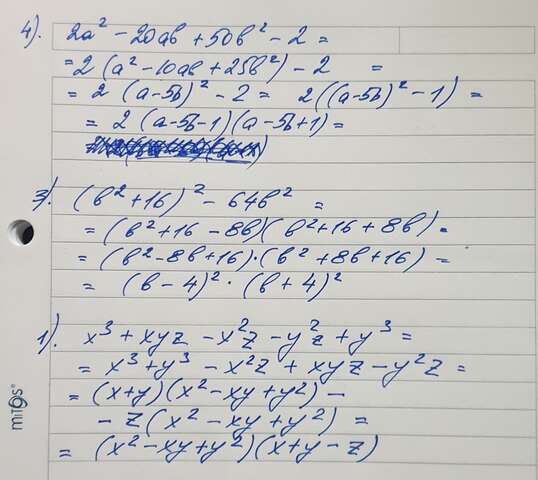 4). 2a² - 20ab + 50b² - 2 =
= 2 (a² - 10ab + 25b²) - 2 =
= 2 (a - 5b)² - 2 = 2 ((a - 5b)² - 1) =
= 2 (a - 5b - 1)(a - 5b + 1) =
3). (b² + 16)² - 64b² =
= (b² + 16 - 8b)(b² + 16 + 8b) =
= (b² - 8b + 16) · (b² + 8b + 16) =
= (b - 4)² · (b + 4)²
1). x³ + xyz - x²z - y²z + y³ =
= x³ + y³ - x²z + xyz - y²z =
= (x + y)(x² - xy + y²) -
- z (x² - xy + y²) =
= (x² - xy + y²)(x + y - z)
miTOS®